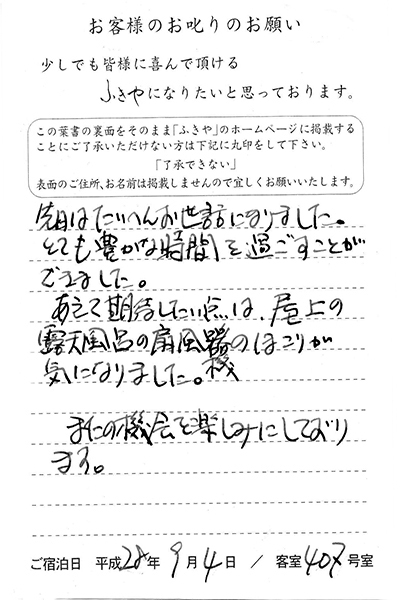 お客様のお叱りのお願い
少しでも皆様に喜んで頂ける
ふきやになりたいと思っております。
この葉書の裏面をそのまま「ふきや」のホームページに掲載する
ことにご了承いただけない方は下記に丸印をして下さい。
「了承できない」
表面のご住所、お名前は掲載しませんので宜しくお願いいたします。
先日はたいへんお世話になりました。
とても豊かな時間を過ごすことが
できました。
あえて期待したい点は、屋上の
露天風呂の扇風器のほこりが
機
気になりました。
またの機会を楽しみにしており
ます。
ご宿泊日 平成28年 9月4日 / 客室407号室